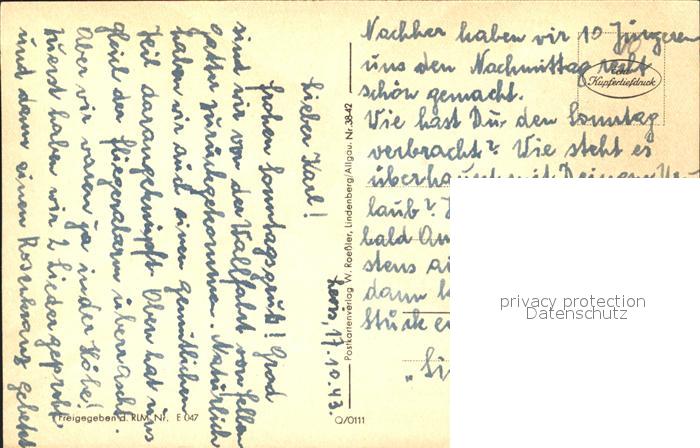 Lenz, 17.10.43.
Lieber Karl!
Frohen Sonntagsgruß! Grad
sind wir von der Wallfahrt von
zurückgekommen. Natürlich
haben wir sind einen gemütlichen
Teil darangeknüpft. Oben hat uns
gleich der Fliegeralarm überrascht.
Aber wir waren ja in der Höhe!
Zuerst haben wir 2 Lieder geprobt
und dann einen Rosenkranz gebetet
Nachher haben wir 10 Jüngeren
uns den Nachmittag recht
schön gemacht.
Wie hast Du den Sonntag
verbracht? Wie steht es
überhaupt mit Deinem Ur-
laub?
bald
stens
dann
Stück
Echt
Kupfertiefdruck
Postkartenverlag W. Roeßler, Lindenberg/Allgäu. Nr. 38-42
Freigegeben d. RLM. Nr. E 047
Q/0111
privacy protection
Datenschutz